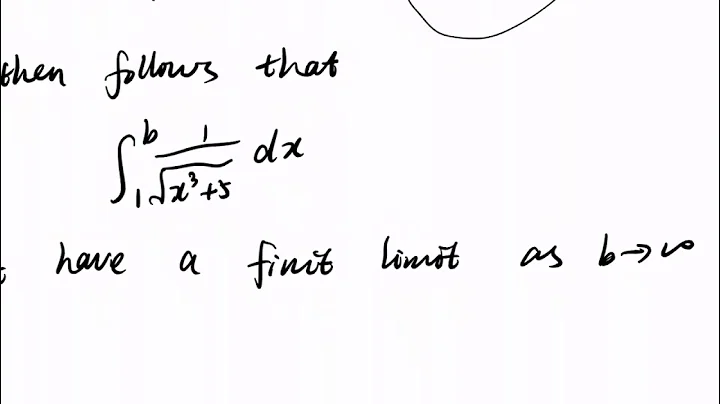 then follows that
∫₁ᵇ 1/√(x³+5) dx
have a finit limit as b→∞